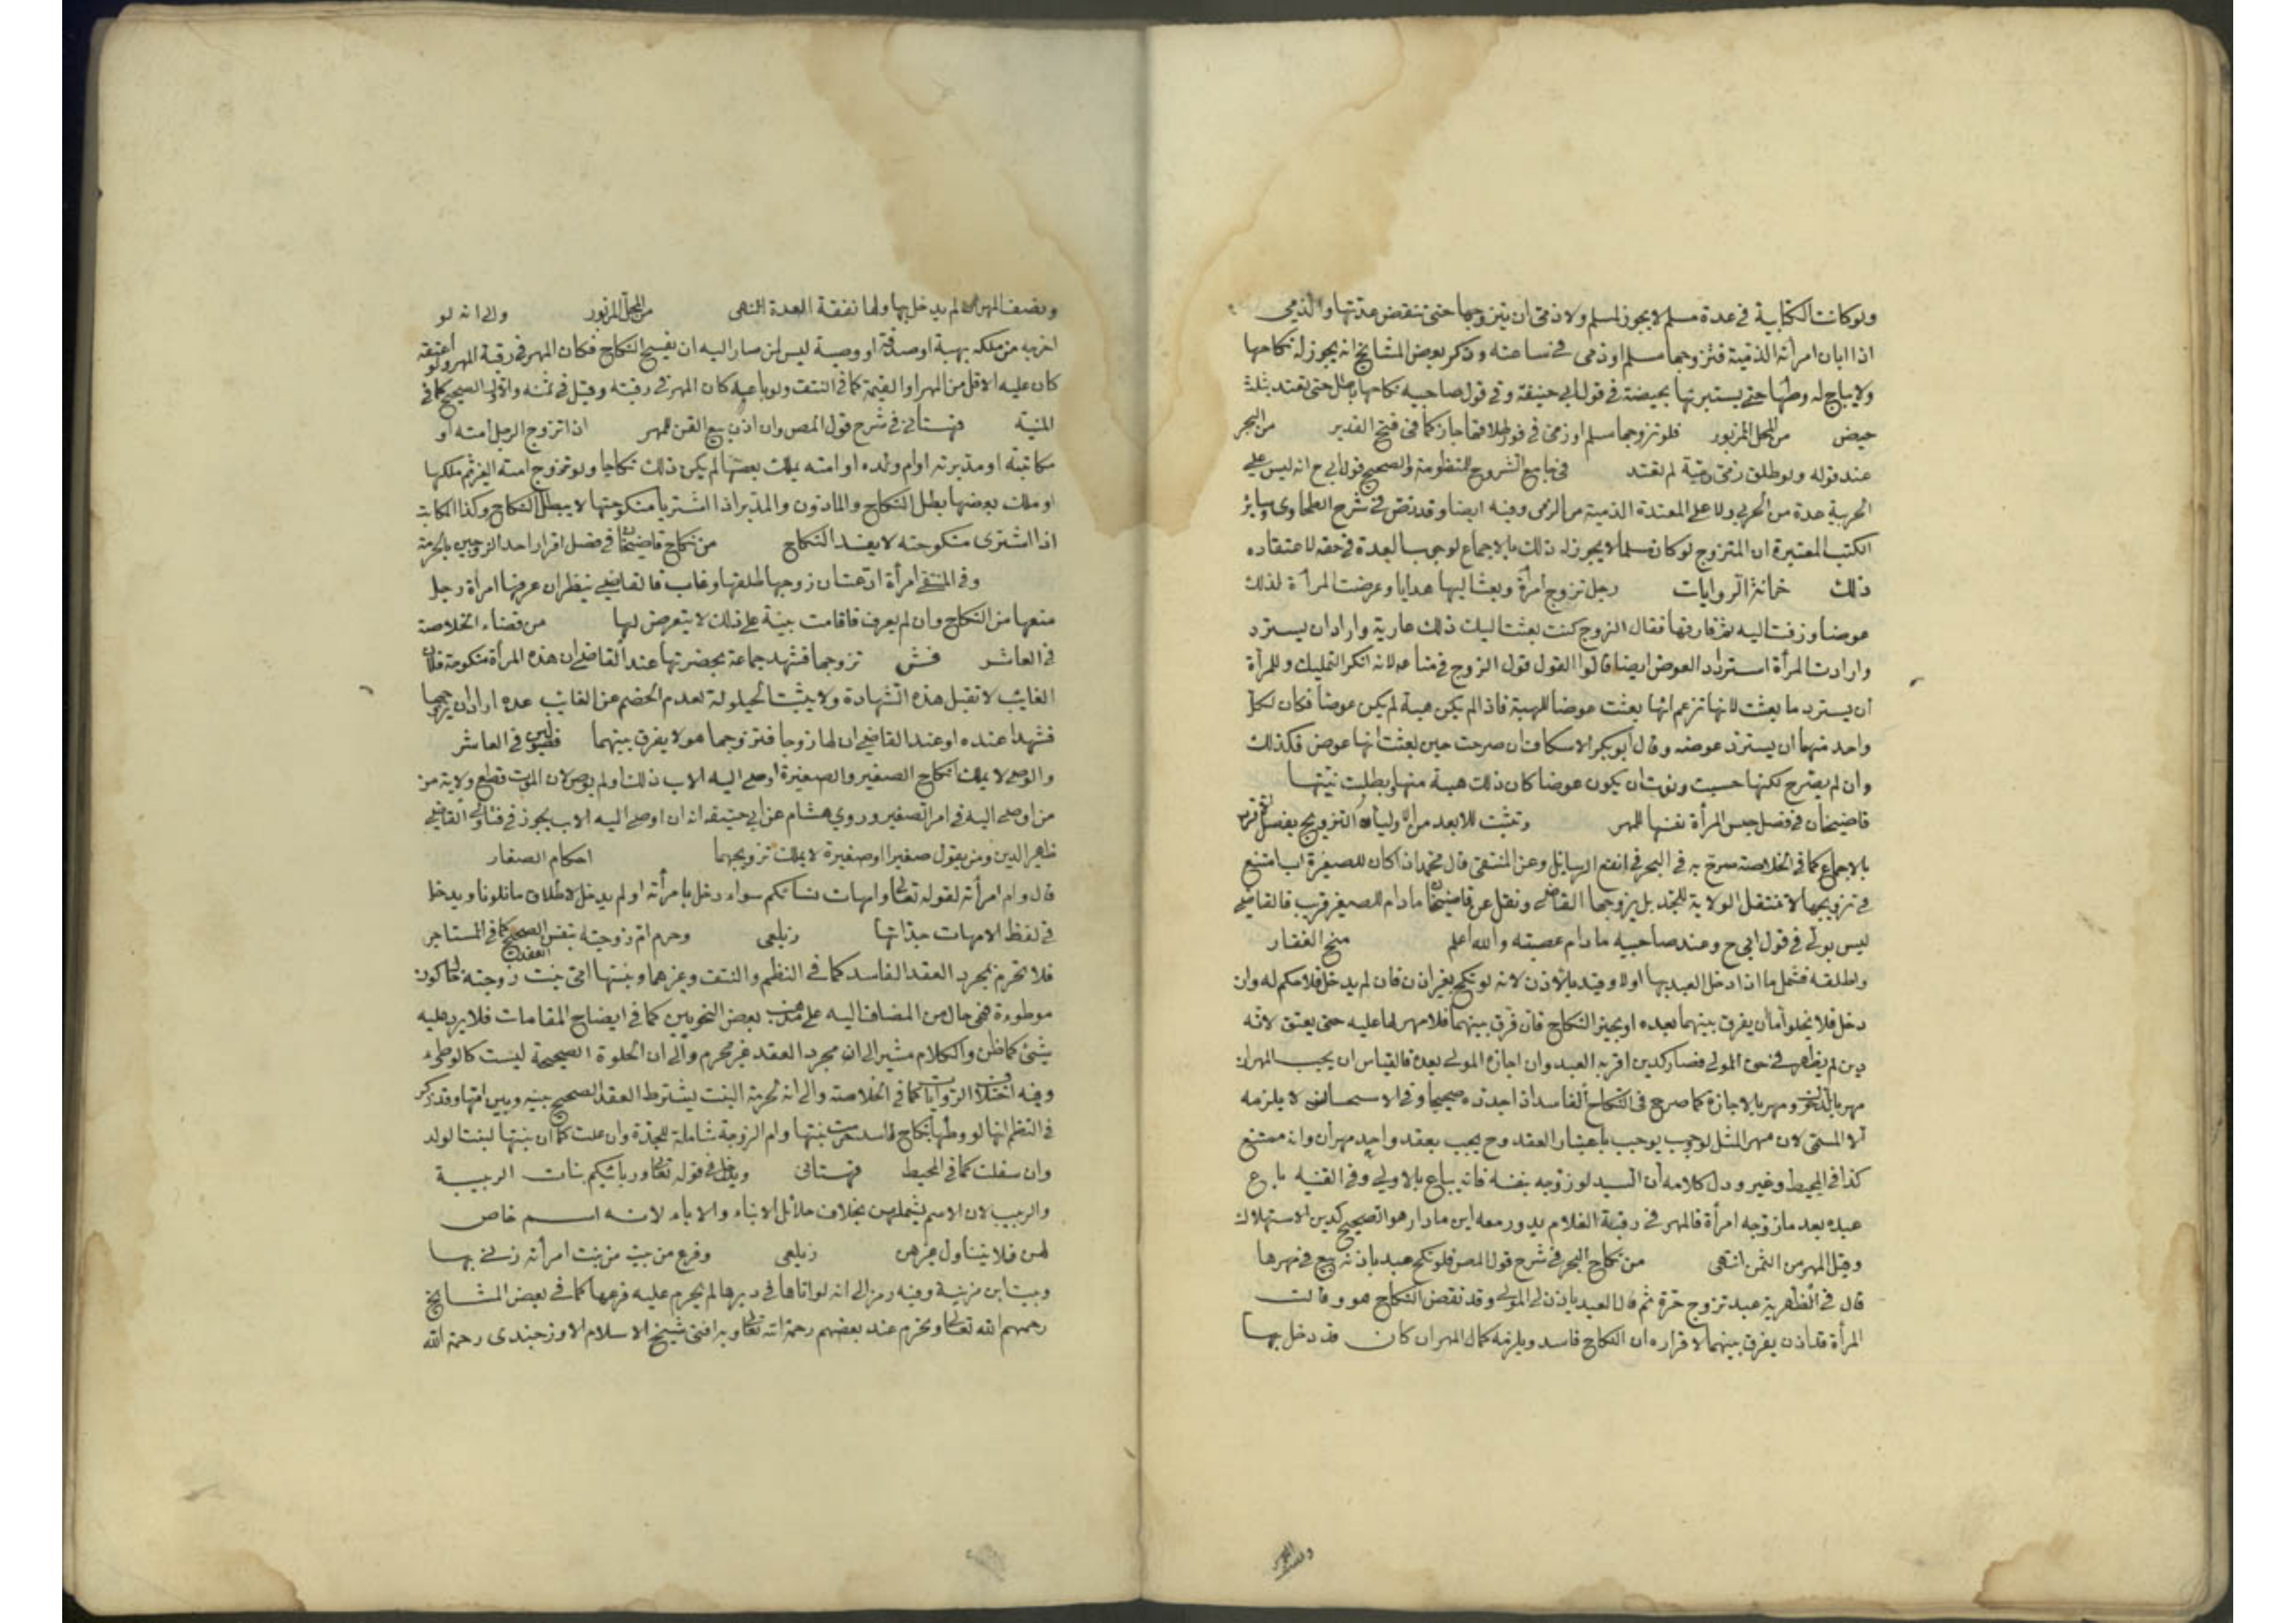 ولو كانت الكتابية في عدة مسلم لا يجوز لمسلم ولا ذمي ان يتزوجها حتى تنقضي عدتها والذمي
اذا ابان امرأته الذمية فتزوجها مسلم او ذمي في ساعته وذكر بعض المشايخ انه يجوز له نكاحها
ولا يباح له وطئها حتى يستبرئها بحيضة في قول ابي حنيفة وفي قول صاحبيه نكاحها باطل حتى تعتد بثلث
حيض من المحل المزبور فلو تزوجها مسلم او ذمي في فور طلاقها جاز كما في فتح القدير من البحر
عند قوله ولو طلق ذمي ذمية لم تعتد في جامع الشروح للمنظومة والصحيح قول ابي ح انه ليس على
الحربية عدة من الحربي ولا على المعتدة الذمية من الذمي وفيه ايضا وقد نص في شرح الطحاوي وسائر
الكتب المعتبرة ان المتزوج لو كان مسلما لا يجوز له ذلك بالاجماع لوجوب العدة في حقه لاعتقاده
ذلك خزانة الروايات رجل تزوج امرأة وبعث اليها هدايا وعوضت المرأة لذلك
عوضا وزفت اليه ثم فارقها فقال الزوج كنت بعثت اليك ذلك عارية واراد ان يسترد
وارادت المرأة استرداد العوض ايضا قالوا القول قول الزوج في متاعه لانه انكر التمليك وللمرأة
ان يسترد ما بعثت لانها تزعم انها بعثت عوضا للهبة فاذا لم يكن هبة لم يكن عوضا فكان لكل
واحد منهما ان يسترد عوضه وقال ابو بكر الاسكاف ان صرحت حين بعثت انها عوض فكذلك
وان لم يصرح لكنها حسبت ونوت ان يكون عوضا كان ذلك هبة منها وبطلت نيتها
قاضيخان في فصل حبس المرأة نفسها للمهر وتثبت للابعد من الاولياء التزويج بعضل الاقرب
بالاجماع كما في الخلاصة صرح به في البحر في انفع الوسائل وعن المنتقى قال محمد اذا كان للصغيرة اب امتنع
في تزويجها لا تنتقل الولاية للجد بل يزوجها القاضي ونقل عن قاضيخان ما دام للصغير قريب فالقاضي
ليس بولي في قول ابي ح وعند صاحبيه ما دام عصبة والله اعلم منح الغفار
واطلقه فشمل ما اذا دخل العبد بها اولا وقيد بالاذن لانه لو نكح بغير اذن فان لم يدخل فلا حكم له وان
دخل فلا يخلوا ما ان يفرق بينهما بعده او يجيز النكاح فان فرق بينهما فلا مهر لها عليه حتى يعتق لانه
دين لم يظهر في حق المولى فصار كدين اقر به العبد وان اجازه المولى بعده فالقياس ان يجب المهران
مهر بالدخول ومهر بالاجازة كما صرح في النكاح الفاسد اذا جدده صحيحا وفي الاستحسان لا يلزمه
الا المسمى لان مهر المثل لو وجب يوجب باعتبار العقد وح يجب بعقد واحد مهران وانه ممتنع
كذا في المحيط وغيره ودل كلامه ان السيد لو زوجه بنفسه فانه يباع بالاولى وفي القنية باع
عبده بعد ما زوجه امرأة فالمهر في رقبة الغلام يدور معه اين ما دار هو الصحيح كدين الاستهلاك
وقيل المهر من الثمن انتهى من نكاح البحر في شرح قول المص فلو نكح عبد باذنه بيع في مهرها
قال في الظهيرية عبد تزوج حرة ثم قال العبد لم ياذن لي المولى وقد نقض النكاح هو وقالت
المرأة قد اذن يفرق بينهما لاقراره ان النكاح فاسد ويلزمه كمال المهر ان كان قد دخل بها
ونصف المهر ان لم يدخل بها ولها نفقة العدة انتهى من المحل المزبور والى انه لو
اخرجه من ملكه بهبة او صدقة او وصية ليس لمن صار اليه ان يفسخ النكاح فكان المهر في رقبة المهر ولو اعتقه
كان عليه الاقل من المهر او القيمة كما في النتف ولو باعه كان المهر في رقبته وقيل في ثمنه والاول الصحيح كما في
المنية قهستاني في شرح قول المص وان اذن بيع القن للمهر اذا تزوج الرجل امته او
مكاتبته او مدبرته او ام ولده او امته يملك بعضها لم يكن ذلك نكاحا ولو تزوج امة الغير ثم ملكها
او ملك بعضها بطل النكاح والمأذون والمدبر اذا اشتريا منكوحتهما لا يبطل النكاح وكذا المكاتب
اذا اشترى منكوحته لا يفسد النكاح من نكاح قاضيخان في فصل اقرار احد الزوجين بالحرمة
وفي المنتقى امرأة ادعت ان زوجها طلقها وغاب فالقاضي ينظر ان عرفها امرأة رجل
منعها من النكاح وان لم يعرف فاقامت بينة على ذلك لا يتعرض لها من قضاء الخلاصة
في العاشر فش تزوجها فشهد جماعة بحضرتها عند القاضي ان هذه المرأة منكوحة فلان
الغائب لا تقبل هذه الشهادة ولا يثبت الحيلولة لعدم الخصم عن الغائب عده اراد ان يتزوجها
فشهدا عنده او عند القاضي ان لها زوجا فتزوجها هو لا يفرق بينهما في العاشر
والوصي لا يملك انكاح الصغير والصغيرة اوصى اليه الاب ذلك او لم يوص لان الموت قطع ولاية من
من اوصى اليه في امر الصغير وروي هشام عن ابي حنيفة انه ان اوصى اليه الاب يجوز في فتاوى القاضي
ظهير الدين ومن يعول صغيرا او صغيرة لا يملك تزويجهما احكام الصغار
قال وام امرأته لقوله تعالى وامهات نسائكم سواء دخل بامرأته او لم يدخل لاطلاق ما تلونا ويدخل
في لفظ الامهات جداتها زيلعي وحرم ام زوجته بنفس العقد الصحيح كما في المستأجر
فلا تحرم بمجرد العقد الفاسد كما في النظم والنتف وغيرهما وبنتها اي بنت زوجته حال كون
موطوءة فهي حال من المضاف اليه على مذهب بعض النحويين كما في ايضاح المقامات فلا يرد عليه
شيء كما ظن والكلام مشير الى ان مجرد العقد غير محرم والى ان الخلوة الصحيحة ليست كالوطئ
وفيه اختلاف الروايات كما في الخلاصة والى انه لحرمة البنت يشترط العقد الصحيح بينه وبين امها وقد ذكر
في النظم انها لو وطئها بنكاح فاسد حرمت بنتها وام الزوجة شاملة للجدة وان علت كما ان بنتها لبنت الولد
وان سفلت كما في المحيط قهستاني ويدخل في قوله تعالى وربائبكم بنات الربيبة
والربيب لان الاسم يشملهن بخلاف حلائل الابناء والاباء لانه اسم خاص
لهن فلا يتناول غيرهن زيلعي وفرع من بنت مزنيته امرأة زنى بها
وبنت ابن مزنية وفيه رمز الى انه لو اتاها في دبرها لم يحرم عليه فرعها كما في بعض المشايخ
رحمهم الله تعالى ويحرم عند بعضهم رحمة الله تعالى وبه افتى شيخ الاسلام الاوزجندي رحمة الله